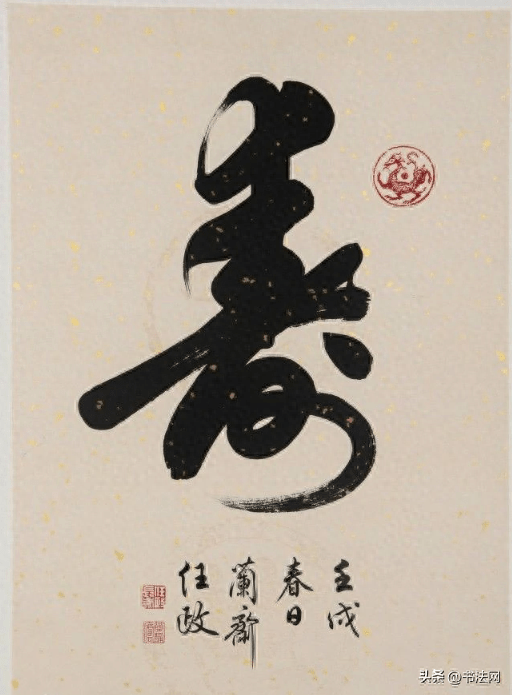 寿
壬戌
春日
蘭齋
任政
头条 @书法网